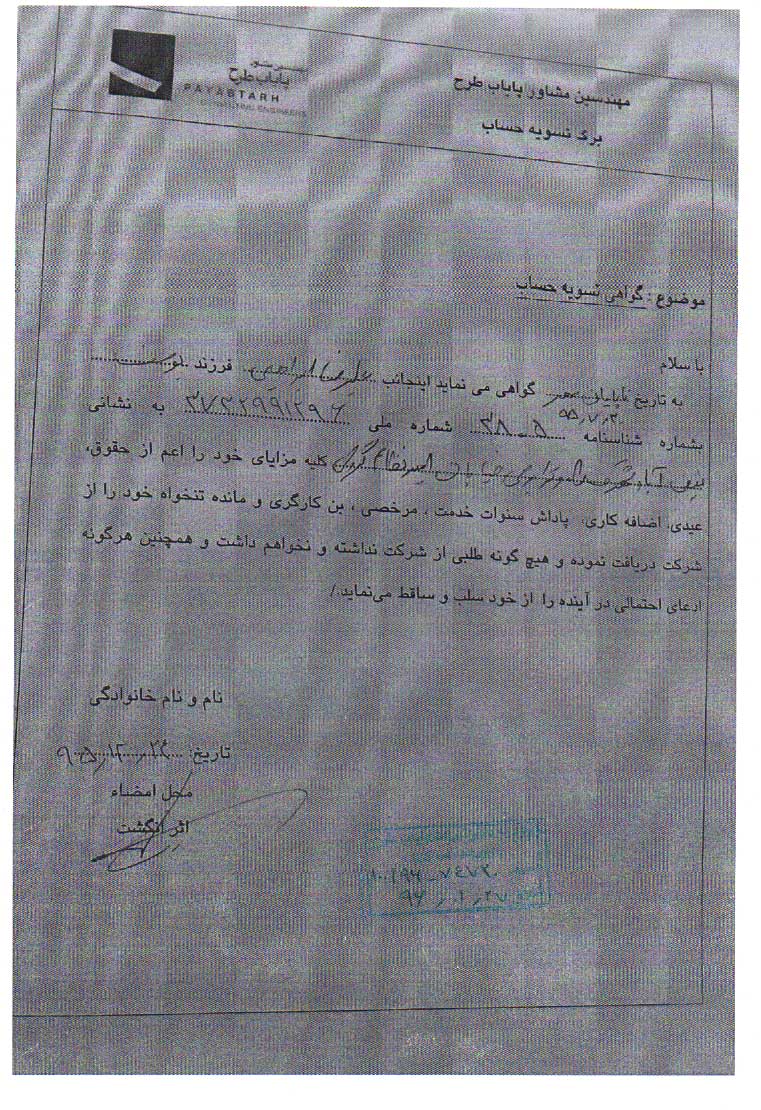 پایاب طرح
PAYABTARH
CONSULTING ENGINEERS
مهندسین مشاور پایاب طرح
برگ تسویه حساب
موضوع : گواهی تسویه حساب
با سلام
به تاریخ پایان مهر گواهی می نماید اینجانب علیرضا فرزند یوسف
۹۵,۷,۳۰
بشماره شناسنامه ۳۸۰۵ شماره ملی ۳۷۳۲۹۹۱۲۹۶ به نشانی
خیابان کلیه مزایای خود را اعم از حقوق،
عیدی، اضافه کاری، پاداش سنوات خدمت ، مرخصی ، بن کارگری و مانده تنخواه خود را از
شرکت دریافت نموده و هیچ گونه طلبی از شرکت نداشته و نخواهم داشت و همچنین هرگونه
ادعای احتمالی در آینده را از خود سلب و ساقط می‌نماید./
نام و نام خانوادگی
تاریخ: ۹۵,۱۲,۲۴
محل امضاء
اثر انگشت
۱۰۰/۹۶-۷۴۷۳۰
۹۶,۰۱,۲۷